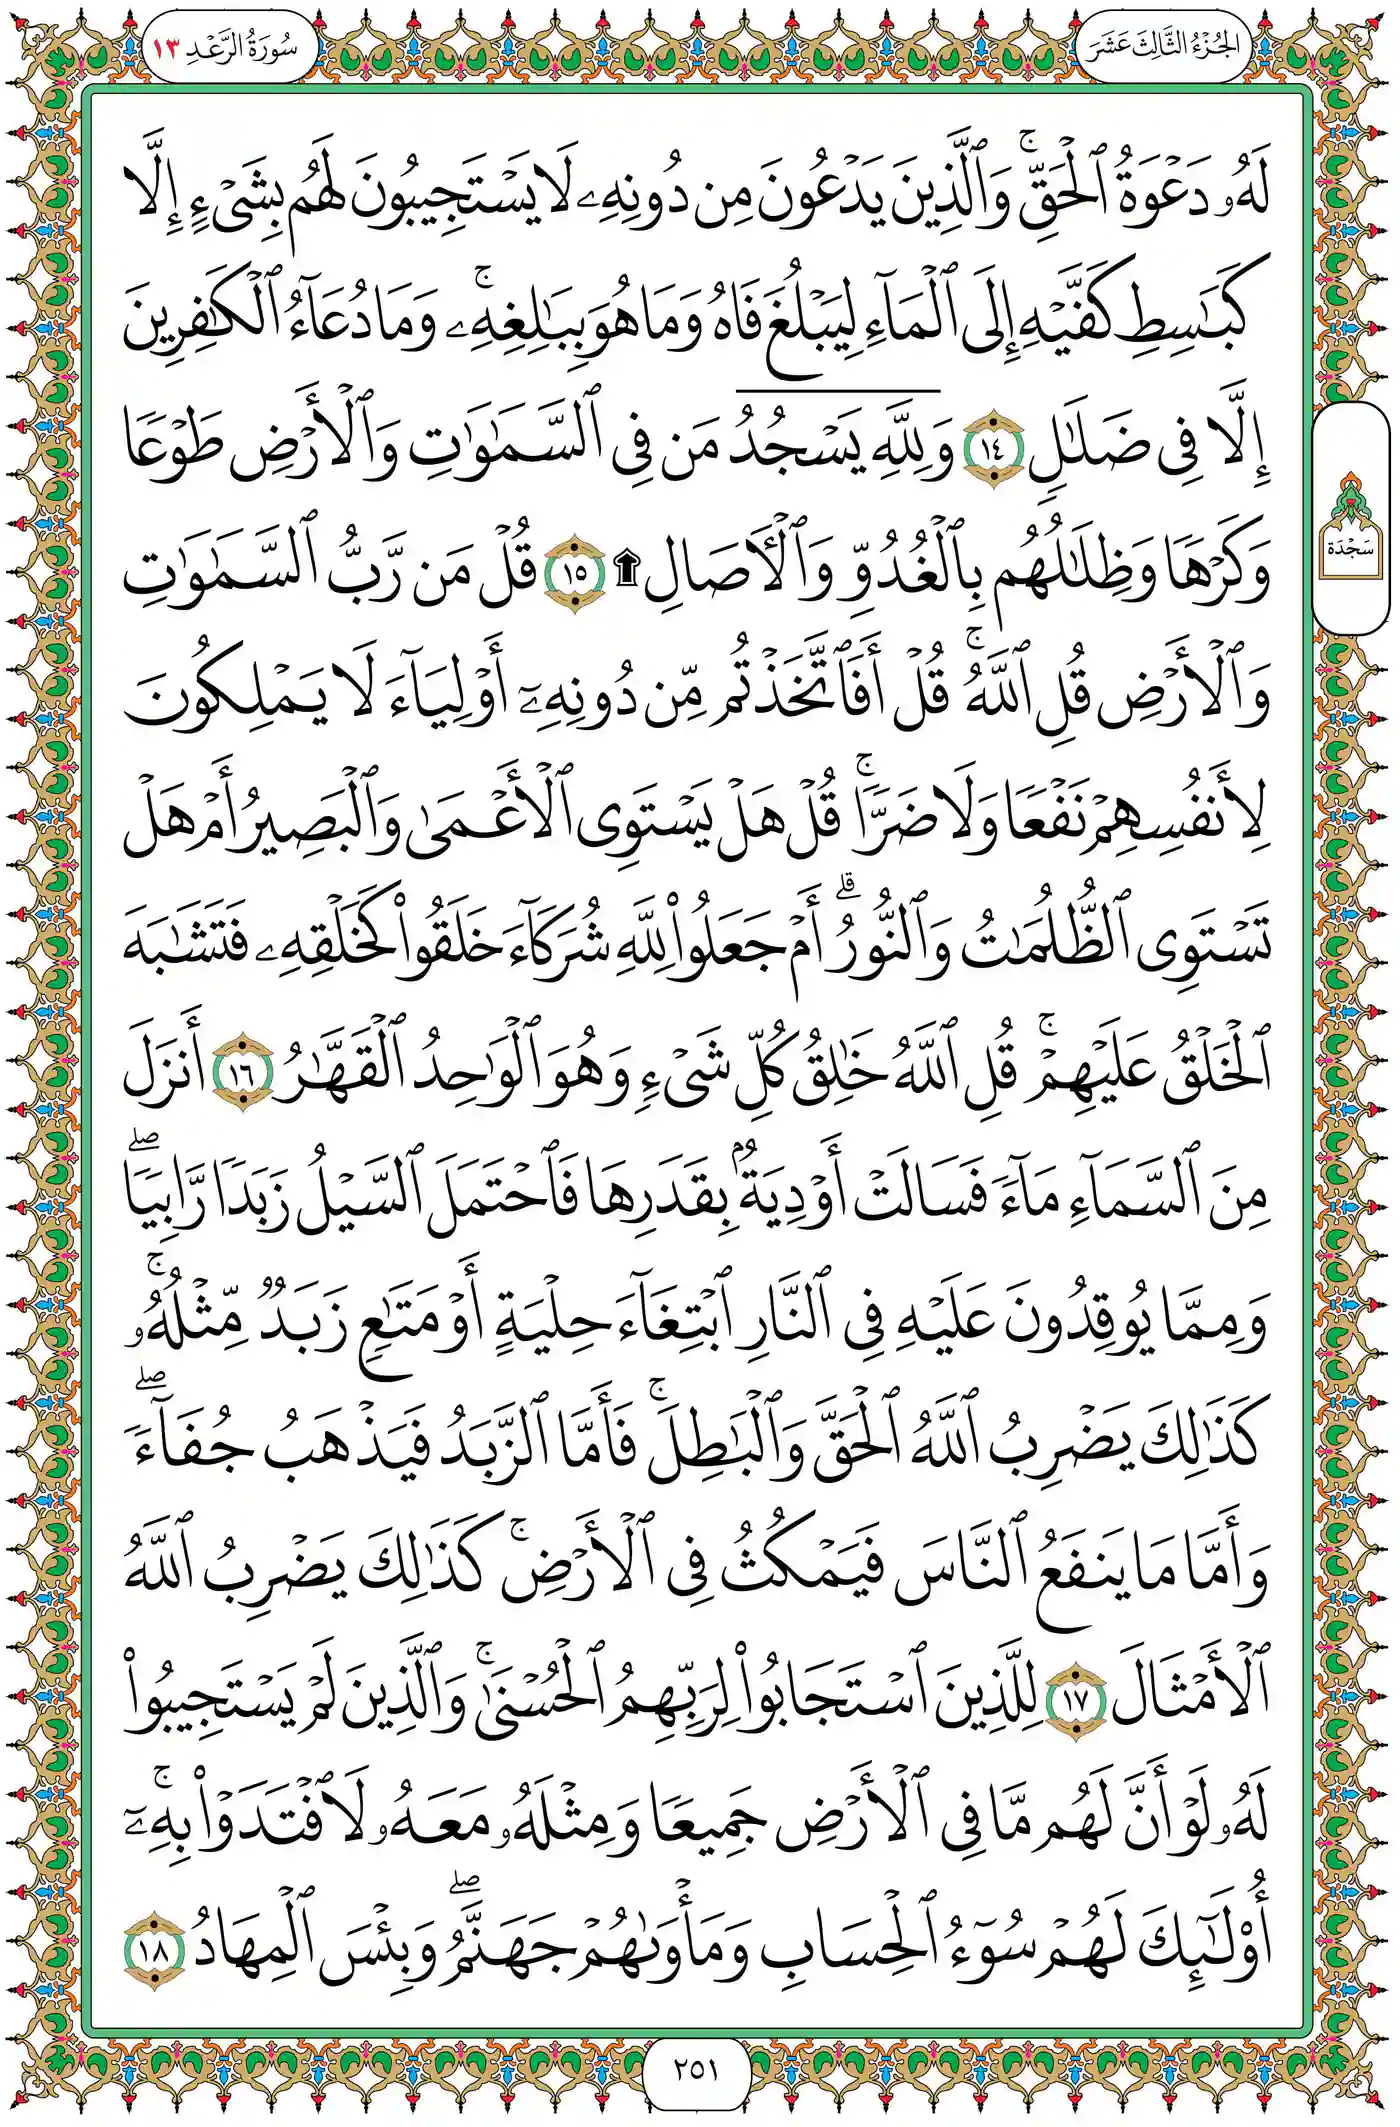 الجُزْءُ الثَّالِثَ عَشَرَ
سُورَةُ الرَّعْدِ ١٣
لَهُۥ دَعْوَةُ ٱلْحَقِّۚ وَٱلَّذِينَ يَدْعُونَ مِن دُونِهِۦ لَا يَسْتَجِيبُونَ لَهُم بِشَىْءٍ إِلَّا
كَبَـٰسِطِ كَفَّيْهِ إِلَى ٱلْمَآءِ لِيَبْلُغَ فَاهُ وَمَا هُوَ بِبَـٰلِغِهِۦۚ وَمَا دُعَآءُ ٱلْكَـٰفِرِينَ
إِلَّا فِى ضَلَـٰلٍ ١٤ وَلِلَّهِ يَسْجُدُ مَن فِى ٱلسَّمَـٰوَٰتِ وَٱلْأَرْضِ طَوْعًا
وَكَرْهًا وَظِلَـٰلُهُم بِٱلْغُدُوِّ وَٱلْـَٔاصَالِ ۩ ١٥ قُلْ مَن رَّبُّ ٱلسَّمَـٰوَٰتِ
وَٱلْأَرْضِ قُلِ ٱللَّهُۚ قُلْ أَفَٱتَّخَذْتُم مِّن دُونِهِۦٓ أَوْلِيَآءَ لَا يَمْلِكُونَ
لِأَنفُسِهِمْ نَفْعًا وَلَا ضَرًّاۚ قُلْ هَلْ يَسْتَوِى ٱلْأَعْمَىٰ وَٱلْبَصِيرُ أَمْ هَلْ
تَسْتَوِى ٱلظُّلُمَـٰتُ وَٱلنُّورُۗ أَمْ جَعَلُوا۟ لِلَّهِ شُرَكَآءَ خَلَقُوا۟ كَخَلْقِهِۦ فَتَشَـٰبَهَ
ٱلْخَلْقُ عَلَيْهِمْۚ قُلِ ٱللَّهُ خَـٰلِقُ كُلِّ شَىْءٍ وَهُوَ ٱلْوَٰحِدُ ٱلْقَهَّـٰرُ ١٦ أَنزَلَ
مِنَ ٱلسَّمَآءِ مَآءً فَسَالَتْ أَوْدِيَةٌۢ بِقَدَرِهَا فَٱحْتَمَلَ ٱلسَّيْلُ زَبَدًا رَّابِيًاۖ
وَمِمَّا يُوقِدُونَ عَلَيْهِ فِى ٱلنَّارِ ٱبْتِغَآءَ حِلْيَةٍ أَوْ مَتَـٰعٍ زَبَدٌ مِّثْلُهُۥۚ
كَذَٰلِكَ يَضْرِبُ ٱللَّهُ ٱلْحَقَّ وَٱلْبَـٰطِلَۚ فَأَمَّا ٱلزَّبَدُ فَيَذْهَبُ جُفَآءًۖ
وَأَمَّا مَا يَنفَعُ ٱلنَّاسَ فَيَمْكُثُ فِى ٱلْأَرْضِۚ كَذَٰلِكَ يَضْرِبُ ٱللَّهُ
ٱلْأَمْثَالَ ١٧ لِلَّذِينَ ٱسْتَجَابُوا۟ لِرَبِّهِمُ ٱلْحُسْنَىٰۚ وَٱلَّذِينَ لَمْ يَسْتَجِيبُوا۟
لَهُۥ لَوْ أَنَّ لَهُم مَّا فِى ٱلْأَرْضِ جَمِيعًا وَمِثْلَهُۥ مَعَهُۥ لَٱفْتَدَوْا۟ بِهِۦٓۚ
أُو۟لَـٰٓئِكَ لَهُمْ سُوٓءُ ٱلْحِسَابِ وَمَأْوَىٰهُمْ جَهَنَّمُۖ وَبِئْسَ ٱلْمِهَادُ ١٨
سَجْدَة
٢٥١